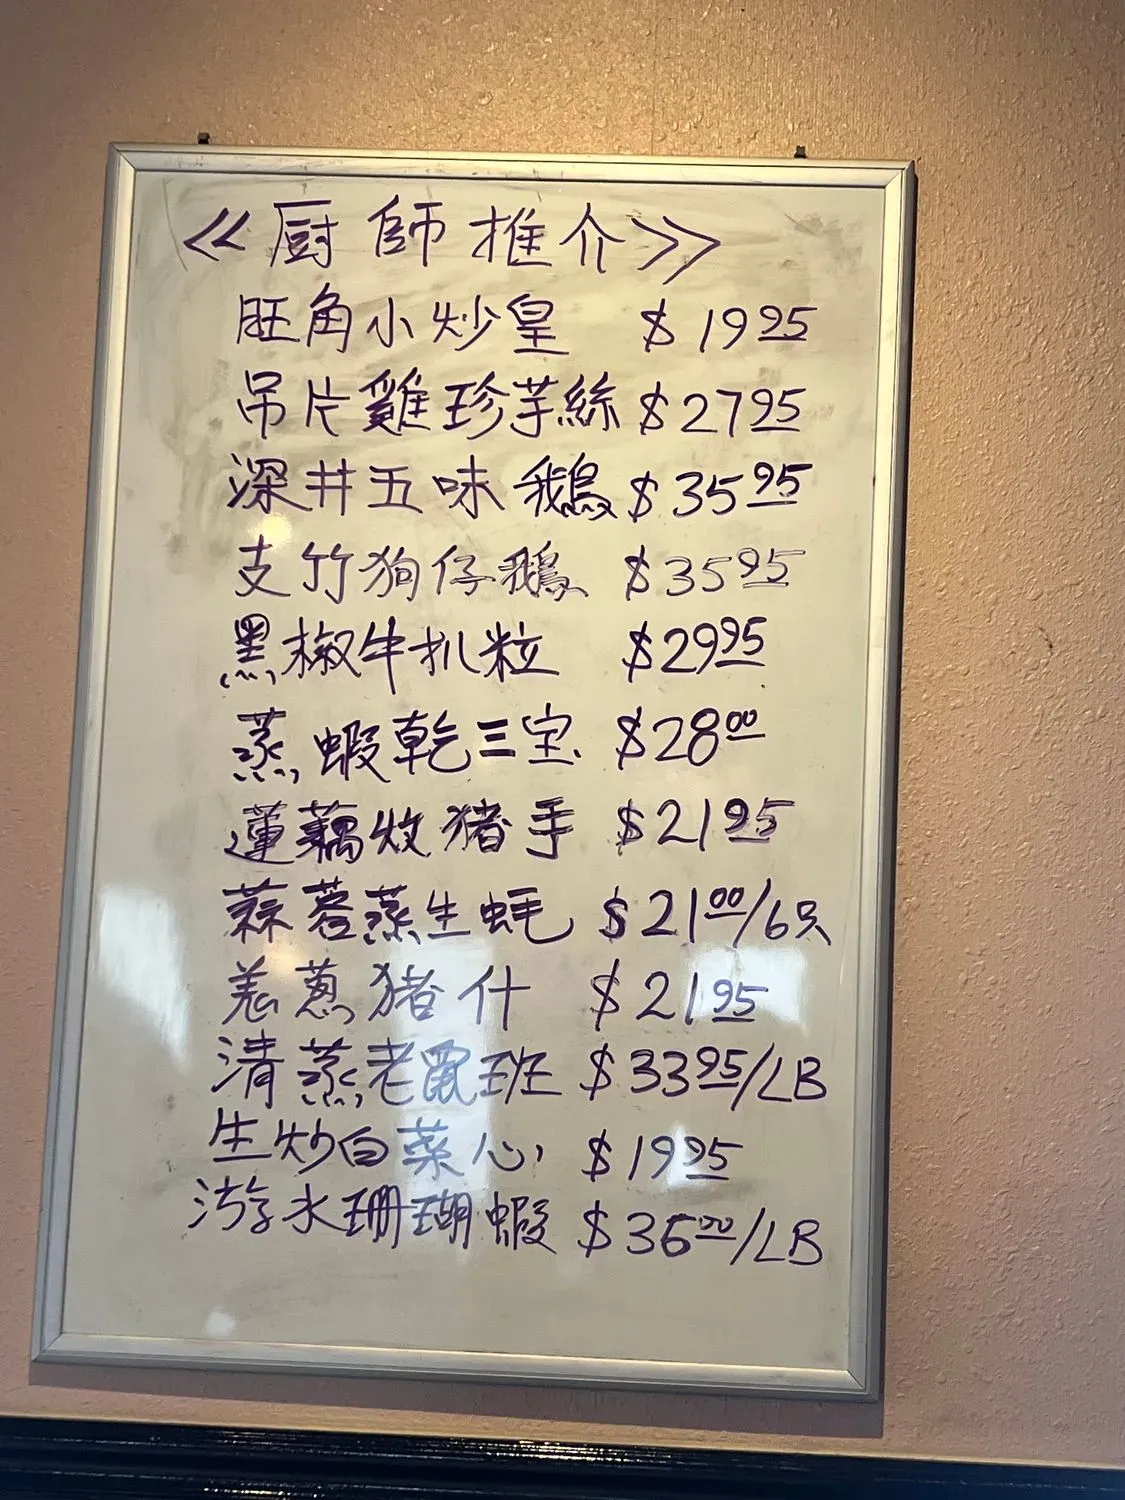 《廚師推介》
旺角小炒皇 $19.95
吊片雞珍芋絲 $27.95
深井五味鵝 $35.95
支竹狗仔鵝 $35.95
黑椒牛扒粒 $29.95
蒸蝦乾三宝 $28.00
蓮藕炆豬手 $21.95
蒜蓉蒸生蚝 $21.00/6只
羌蔥豬什 $21.95
清蒸老鼠班 $33.95/LB
生炒白菜心 $19.95
游水珊瑚蝦 $36.00/LB